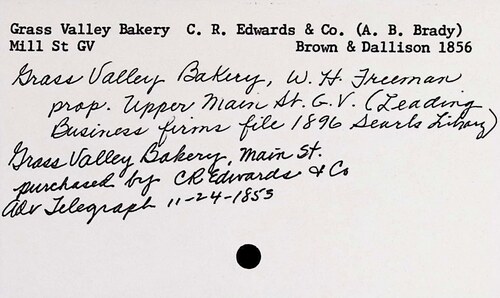 Grass Valley Bakery C. R. Edwards & Co. (A. B. Brady)
Mill St GV Brown & Dallison 1856
Grass Valley Bakery, W. H. Freeman
prop. Upper Main St. G.V. (Leading
Business firms file 1896 Searls Library)
Grass Valley Bakery, Main St.
purchased by CR Edwards & Co
Adv Telegraph 11-24-1853